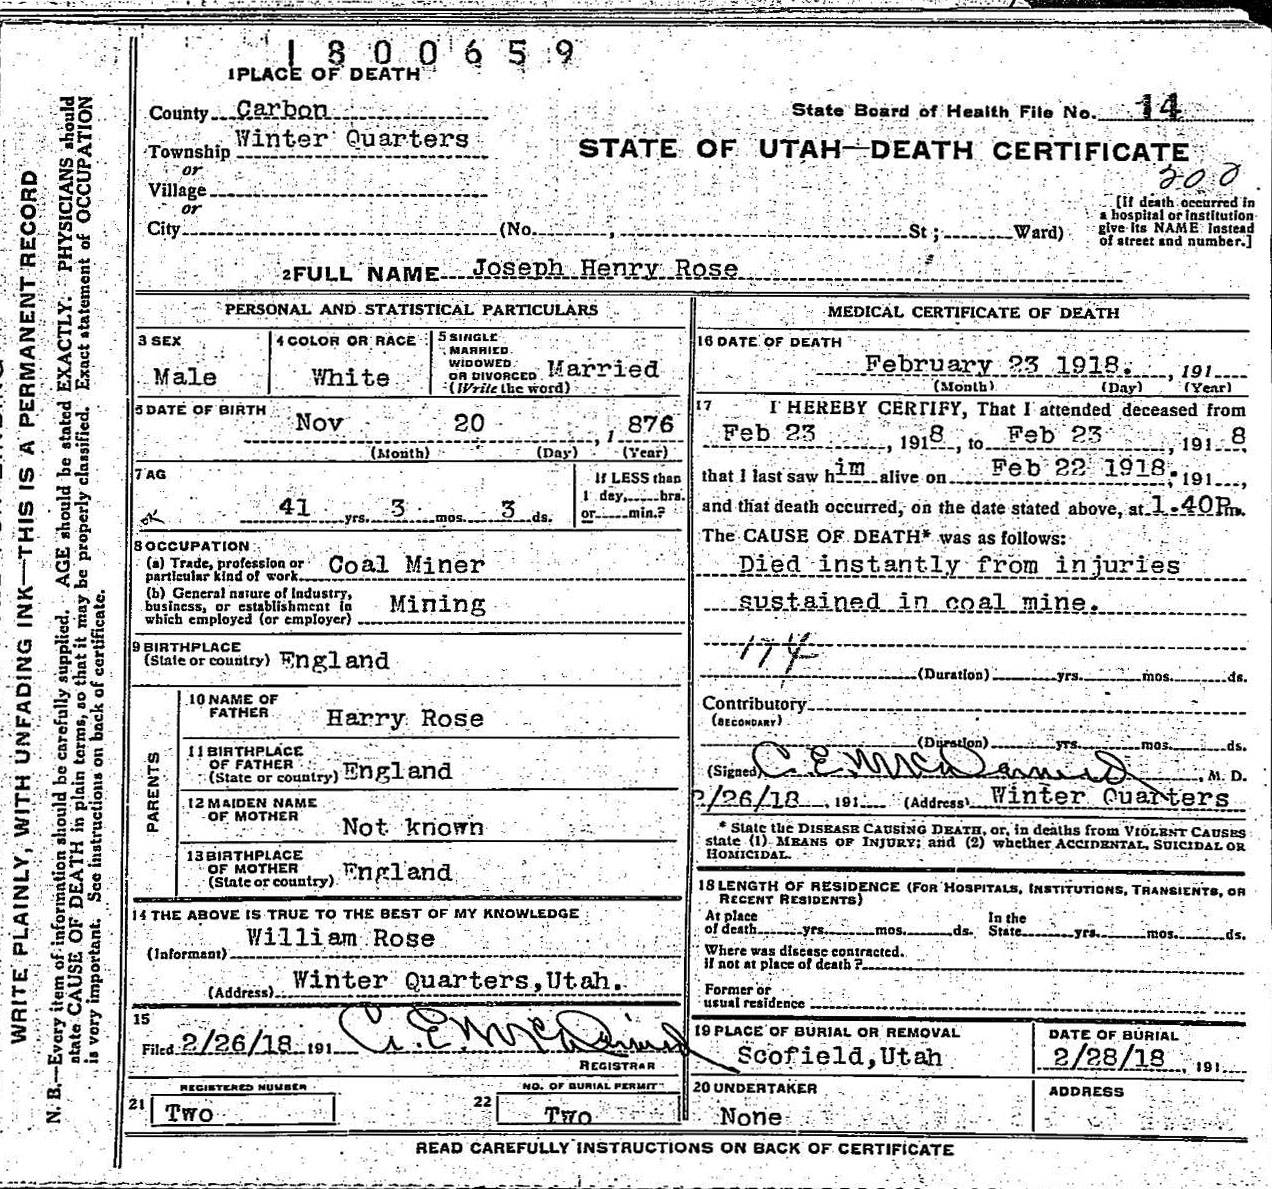 1800659
1 PLACE OF DEATH
County Carbon
State Board of Health File No. 14
Township Winter Quarters
or
STATE OF UTAH—DEATH CERTIFICATE
200
Village
or
City (No. , St; Ward)
[If death occurred in
a hospital or institution
give its NAME instead
of street and number.]
2 FULL NAME Joseph Henry Rose
PERSONAL AND STATISTICAL PARTICULARS
3 SEX
Male
4 COLOR OR RACE
White
5 SINGLE
MARRIED
WIDOWED
OR DIVORCED
(Write the word)
Married
6 DATE OF BIRTH
Nov 20 , 1 876
(Month) (Day) (Year)
7 AG
41 yrs. 3 mos. 3 ds.
If LESS than
1 day, hrs.
or min.?
8 OCCUPATION
(a) Trade, profession or
particular kind of work Coal Miner
(b) General nature of Industry,
business, or establishment in
which employed (or employer) Mining
9 BIRTHPLACE
(State or country) England
PARENTS
10 NAME OF
FATHER Harry Rose
11 BIRTHPLACE
OF FATHER
(State or country) England
12 MAIDEN NAME
OF MOTHER Not known
13 BIRTHPLACE
OF MOTHER
(State or country) England
14 THE ABOVE IS TRUE TO THE BEST OF MY KNOWLEDGE
(Informant) William Rose
(Address) Winter Quarters,Utah.
15
Filed 2/26/18 191 C. E. McDermid
REGISTRAR
REGISTERED NUMBER
21 Two
NO. OF BURIAL PERMIT
22 Two
MEDICAL CERTIFICATE OF DEATH
16 DATE OF DEATH
February 23 1918. , 191
(Month) (Day) (Year)
17 I HEREBY CERTIFY, That I attended deceased from
Feb 23 , 1918, to Feb 23 , 191 8
that I last saw him alive on Feb 22 1918. 191 ,
and that death occurred, on the date stated above, at 1.40P m.
The CAUSE OF DEATH* was as follows:
Died instantly from injuries
sustained in coal mine.
174
(Duration) yrs. mos. ds.
Contributory
(SECONDARY)
(Duration) yrs. mos. ds.
(Signed) C. E. McDermid , M. D.
2/26/18 , 191 (Address) Winter Quarters
* State the DISEASE CAUSING DEATH, or, in deaths from VIOLENT CAUSES
state (1) MEANS OF INJURY; and (2) whether ACCIDENTAL, SUICIDAL OR
HOMICIDAL.
18 LENGTH OF RESIDENCE (FOR HOSPITALS, INSTITUTIONS, TRANSIENTS, OR
RECENT RESIDENTS)
At place
of death yrs. mos. ds.
In the
State yrs. mos. ds.
Where was disease contracted.
if not at place of death?
Former or
usual residence
19 PLACE OF BURIAL OR REMOVAL
Scofield,Utah
DATE OF BURIAL
2/28/18 , 191
20 UNDERTAKER
None
ADDRESS
READ CAREFULLY INSTRUCTIONS ON BACK OF CERTIFICATE
WRITE PLAINLY, WITH UNFADING INK—THIS IS A PERMANENT RECORD
N. B.—Every item of information should be carefully supplied. AGE should be stated EXACTLY. PHYSICIANS should
state CAUSE OF DEATH in plain terms, so that it may be properly classified. Exact statement of OCCUPATION
is very important. See instructions on back of certificate.